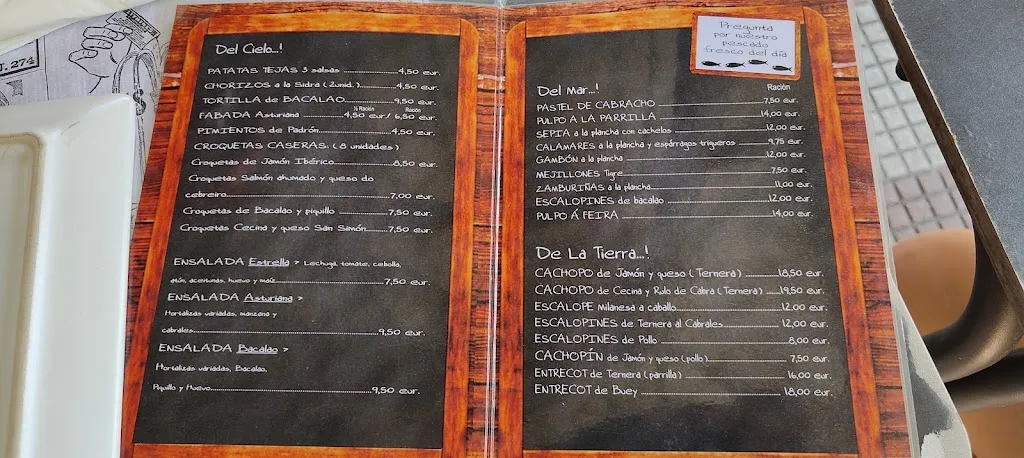 J. 274
Del Cielo...!
PATATAS TEJAS 3 salsas 4,50 eur.
CHORIZOS a la Sidra (2unid.) 4,50 eur.
TORTILLA de BACALAO 9,50 eur.
½ Ración Ración
FABADA Asturiana 4,50 eur./ 6,50 eur.
PIMIENTOS de Padrón 4,50 eur.
CROQUETAS CASERAS: (8 unidades)
Croquetas de Jamón Ibérico 8,50 eur.
Croquetas Salmón ahumado y queso do
cebreiro 7,00 eur.
Croquetas de Bacalao y piquillo 7,50 eur.
Croquetas Cecina y queso San Simón 7,50 eur.
ENSALADA Estrella > Lechuga, tomate, cebolla,
atún, aceitunas, huevo y maíz 7,50 eur.
ENSALADA Asturiana >
Hortalizas variadas, manzana y
cabrales 9,50 eur.
ENSALADA Bacalao >
Hortalizas variadas, Bacalao,
Piquillo y Huevo 9,50 eur.
Pregunta
por nuestro
pescado
fresco del día
Del Mar...!
Ración
PASTEL DE CABRACHO 7,50 eur.
PULPO A LA PARRILLA 14,00 eur.
SEPIA a la plancha con cachelos 12,00 eur.
CALAMARES a la plancha y espárragos trigueros 9,75 eur.
GAMBÓN a la plancha 12,00 eur.
MEJILLONES Tigre 7,50 eur.
ZAMBURIÑAS a la plancha 11,00 eur.
ESCALOPINES de bacalao 12,00 eur.
PULPO Á FEIRA 14,00 eur.
De La Tierra...!
CACHOPO de Jamón y queso (Ternera) 18,50 eur.
CACHOPO de Cecina y Rulo de Cabra (Ternera) 19,50 eur.
ESCALOPE Milanesa a caballo 12,00 eur.
ESCALOPINES de Ternera al Cabrales 12,00 eur.
ESCALOPINES de Pollo 8,00 eur.
CACHOPÍN de Jamón y queso (pollo) 7,50 eur.
ENTRECOT de Ternera (parrilla) 16,00 eur.
ENTRECOT de Buey 18,00 eur.